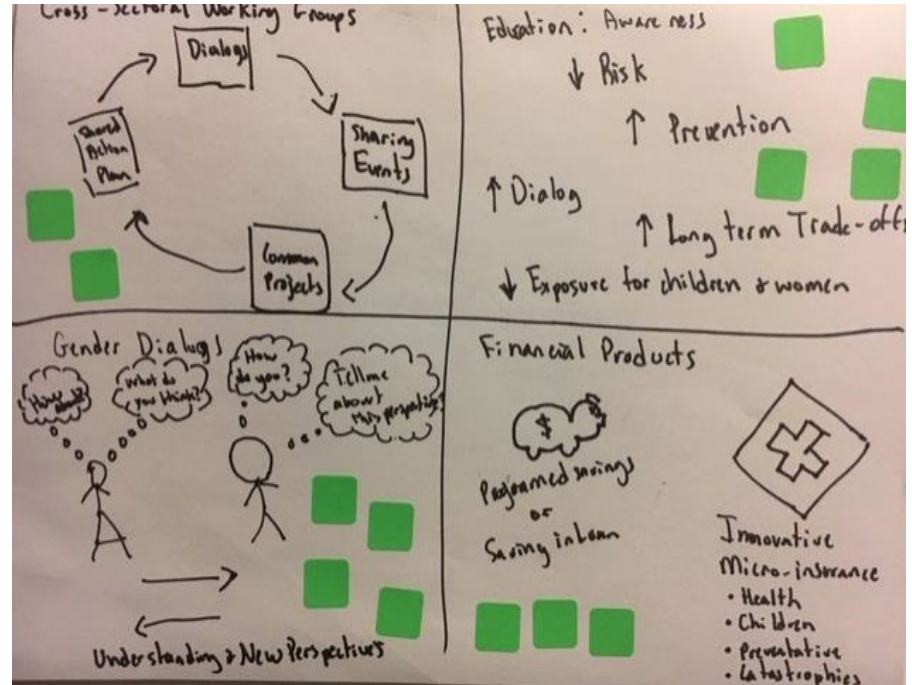 Cross-Sectoral Working Groups
Dialogs
Sharing
Events
Common
Projects
Shared
Action
Plan
Education: Awareness
↓ Risk
↑ Prevention
↑ Dialog
↑ Long term Trade-offs
↓ Exposure for children & women
Gender Dialogs
What do
you think?
How
do you?
Tell me
about
this perspective
Understanding & New Perspectives
Financial Products
$
Programed savings
or
Saving in Loan
Innovative
Micro-insurance
• Health
• Children
• Preventative
• Catastrophies